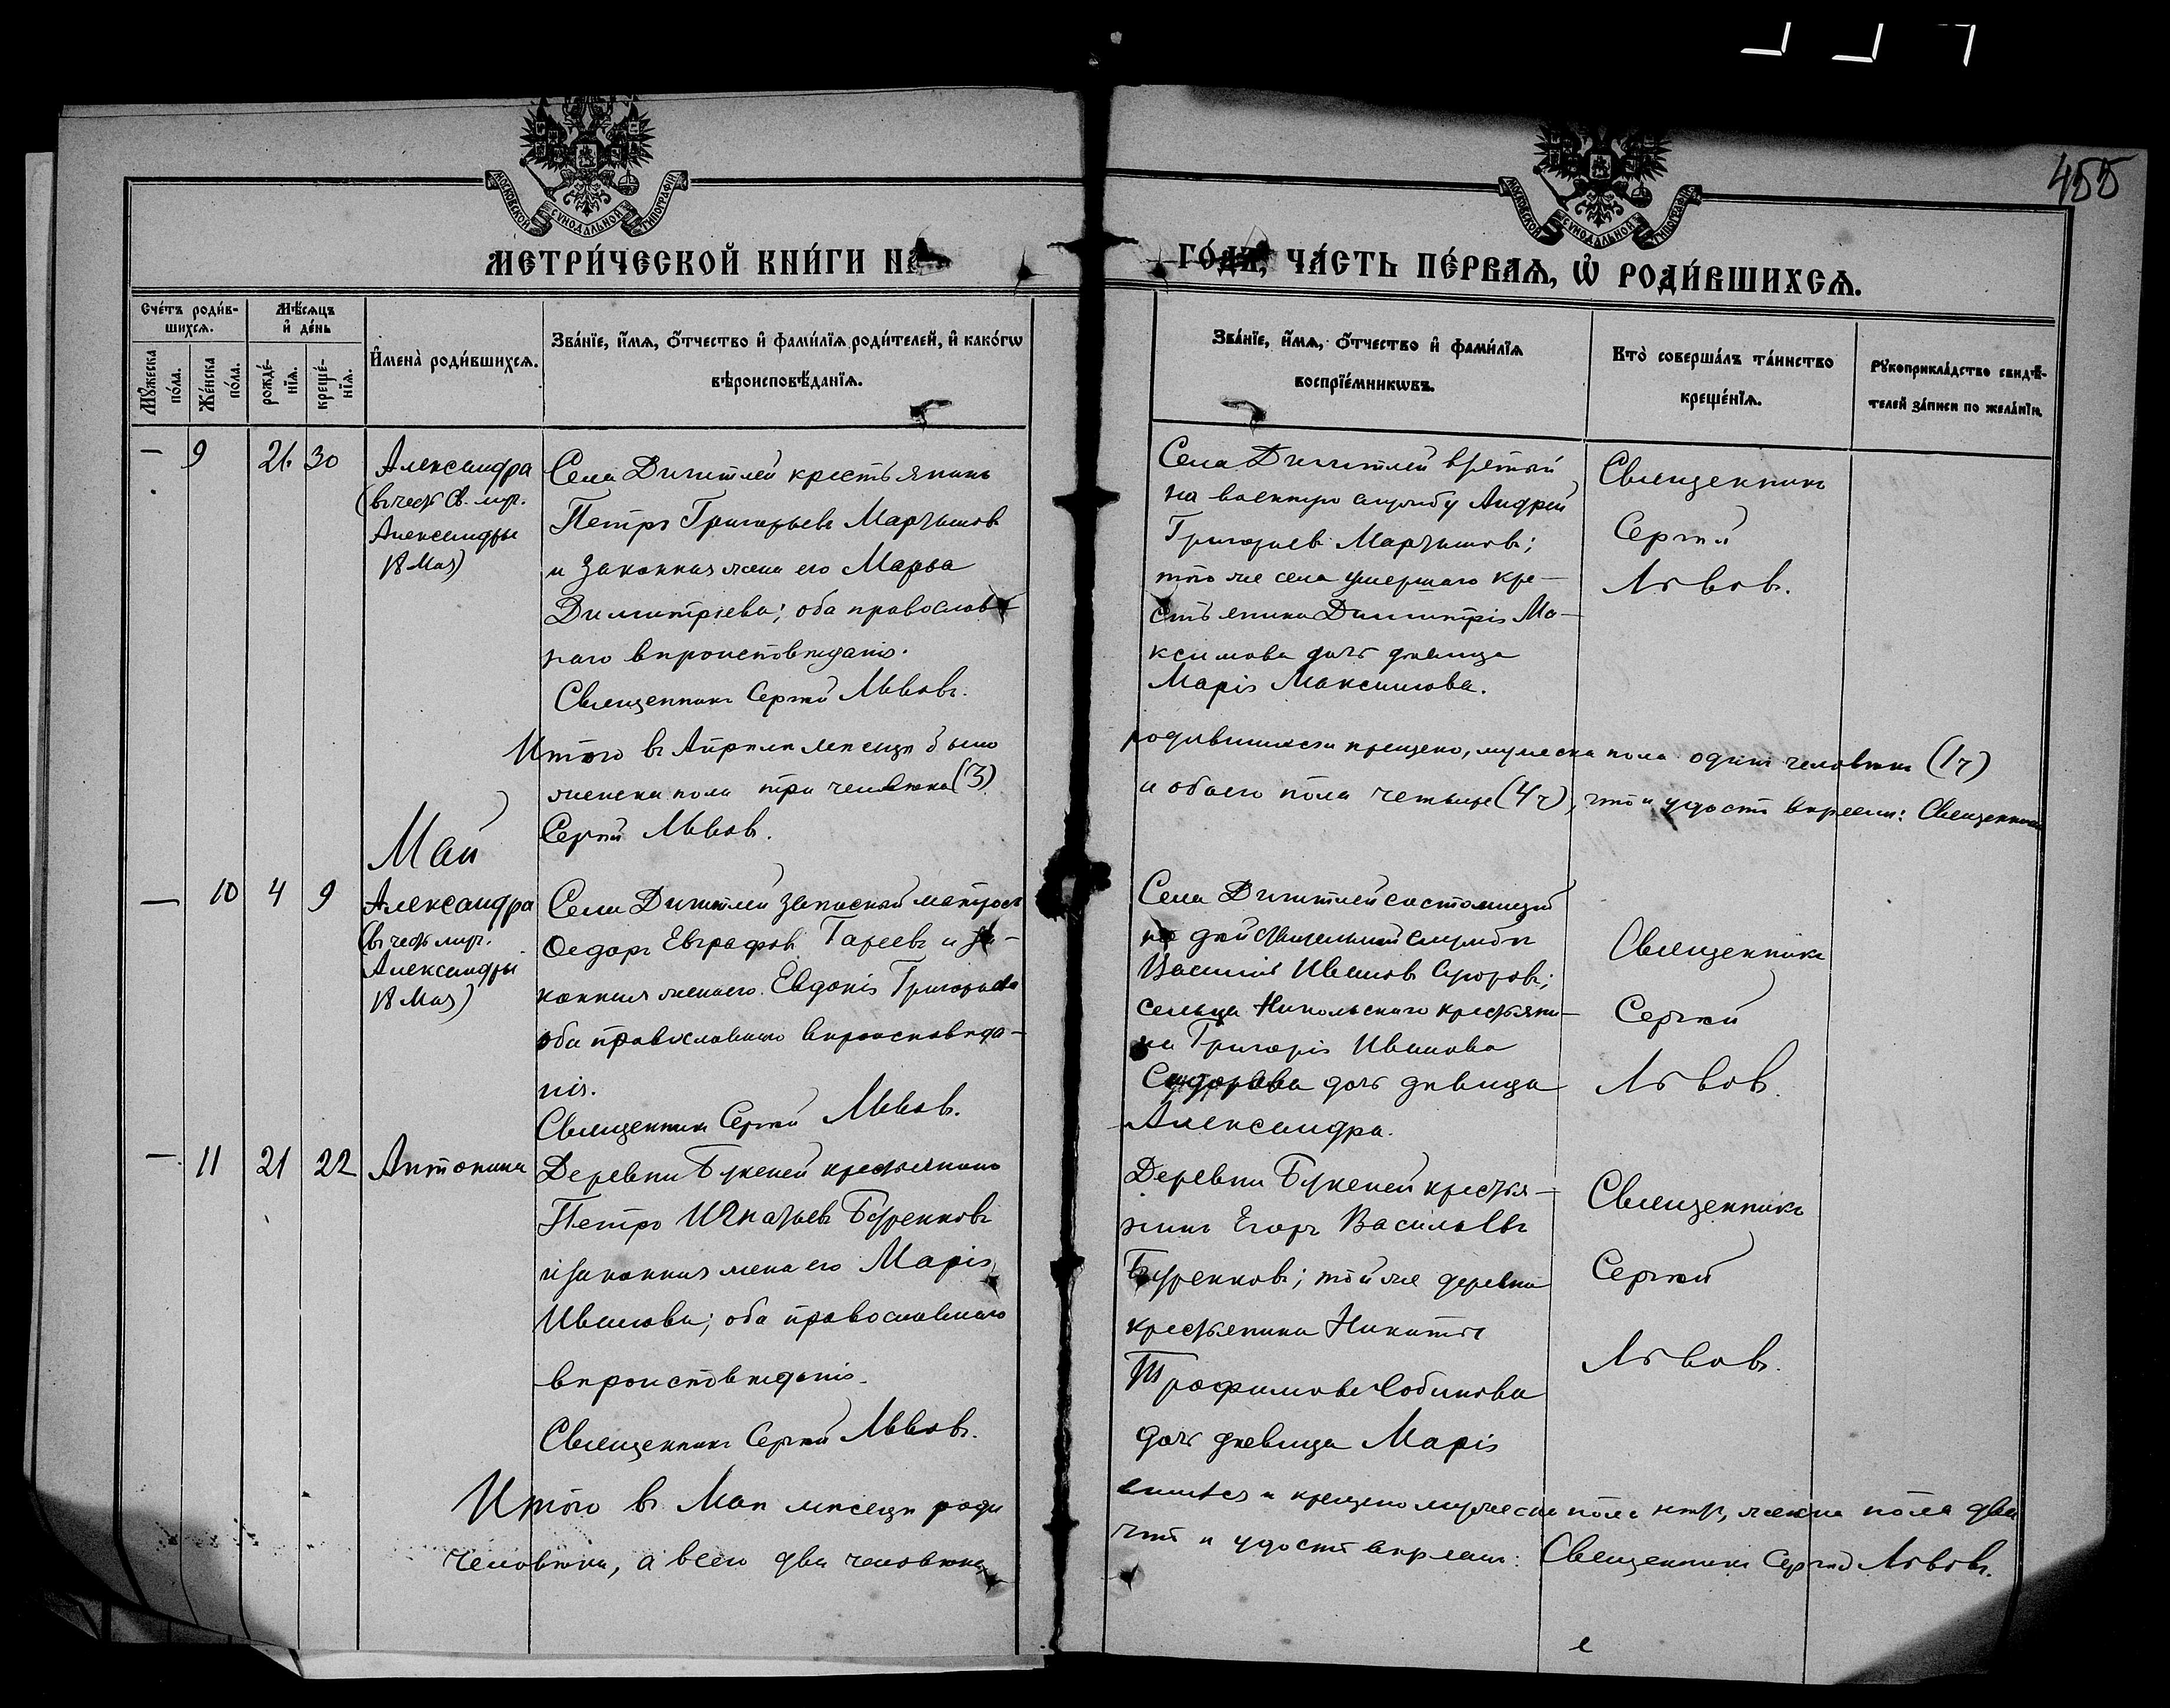 455
МОСКОВСКОЙ СѴНОДАЛЬНОЙ ТИПОГРАФІИ
МОСКОВСКОЙ СѴНОДАЛЬНОЙ ТИПОГРАФІИ
МЕТРИ́ЧЕСКОЙ КНИ́ГИ НА
ГО́ДЪ, ЧА́СТЬ ПЕ́РВАѦ, Ѡ РОДИ́ВШИХСѦ.
Сче́тъ роди́в-
шихсѧ.
Мꙋ́жеска по́ла.
Же́нска по́ла.
Мѣ́сѧцъ
и҆ де́нь
рожде́-
нїѧ.
креще́-
нїѧ.
И҆мена̀ роди́вшихсѧ.
Зва́нїе, и҆́мѧ, ѻ҆́тчество и҆ фами́лїѧ роди́телей, и҆ како́гѡ
вѣроисповѣ́данїѧ.
Зва́нїе, и҆́мѧ, ѻ҆́тчество и҆ фами́лїѧ
воспрїе́мникѡвъ.
Кто̀ соверша́лъ та́инство
креще́нїѧ.
Рꙋкоприкла́дство свидѣ́-
телей за́писи по жела́нїю.
— 9 21 30
Александра
(въ честь Св. муч.
Александры
18 Мая)
Села Дигитлей крестьянинъ
Петръ Григорьевъ
и законная жена его Марѳа
Димитріева; оба православ-
наго вѣроисповѣданія.
Священникъ Сергій Львовъ.
Села Дигитлей взятый
на военную службу Андрей
Григорьевъ
того же села умершаго кре-
стьянина Димитрія Ма-
ксимова дочь дѣвица
Марія Максимова.
Священникъ
Сергій
Львовъ.
Итого въ Апрѣлѣ мѣсяцѣ было
родившихся и крещено, мужеска пола одинъ человѣкъ (1 ч)
женска пола три человѣка (3)
и обоего пола четыре (4 ч), что и удостовѣряемъ: Священникъ
Сергій Львовъ.
Май
— 10 4 9
Александра
(въ честь муч.
Александры
18 Мая)
Села Дигитлей запасный матросъ
Ѳедоръ Евграфовъ и за-
конная жена его Евдокія Григорьева
оба православнаго вѣроисповѣда-
нія.
Священникъ Сергій Львовъ.
Села Дигитлей состоящій
на дѣйствительной службѣ
Василій Ивановъ
сельца Никольскаго крестьяни-
на Григорія Иванова
Сидорова дочь дѣвица
Александра.
Священникъ
Сергій
Львовъ.
— 11 21 22
Антонина
Деревни Букеней крестьянинъ
Петръ Игнатьевъ Буренковъ
и законная жена его Марія
Иванова; оба православнаго
вѣроисповѣданія.
Священникъ Сергій Львовъ.
Деревни Букеней крестья-
нинъ Егоръ Васильевъ
Буренковъ; той же деревни
крестьянина Никиты
Трофимова
дочь дѣвица Марія
Священникъ
Сергій
Львовъ.
Итого въ Маѣ мѣсяцѣ роди
вшихся и крещено мужеска пола нѣтъ, женска пола два
человѣка, а всего два человѣка,
что и удостовѣряемъ: Священникъ Сергій Львовъ.